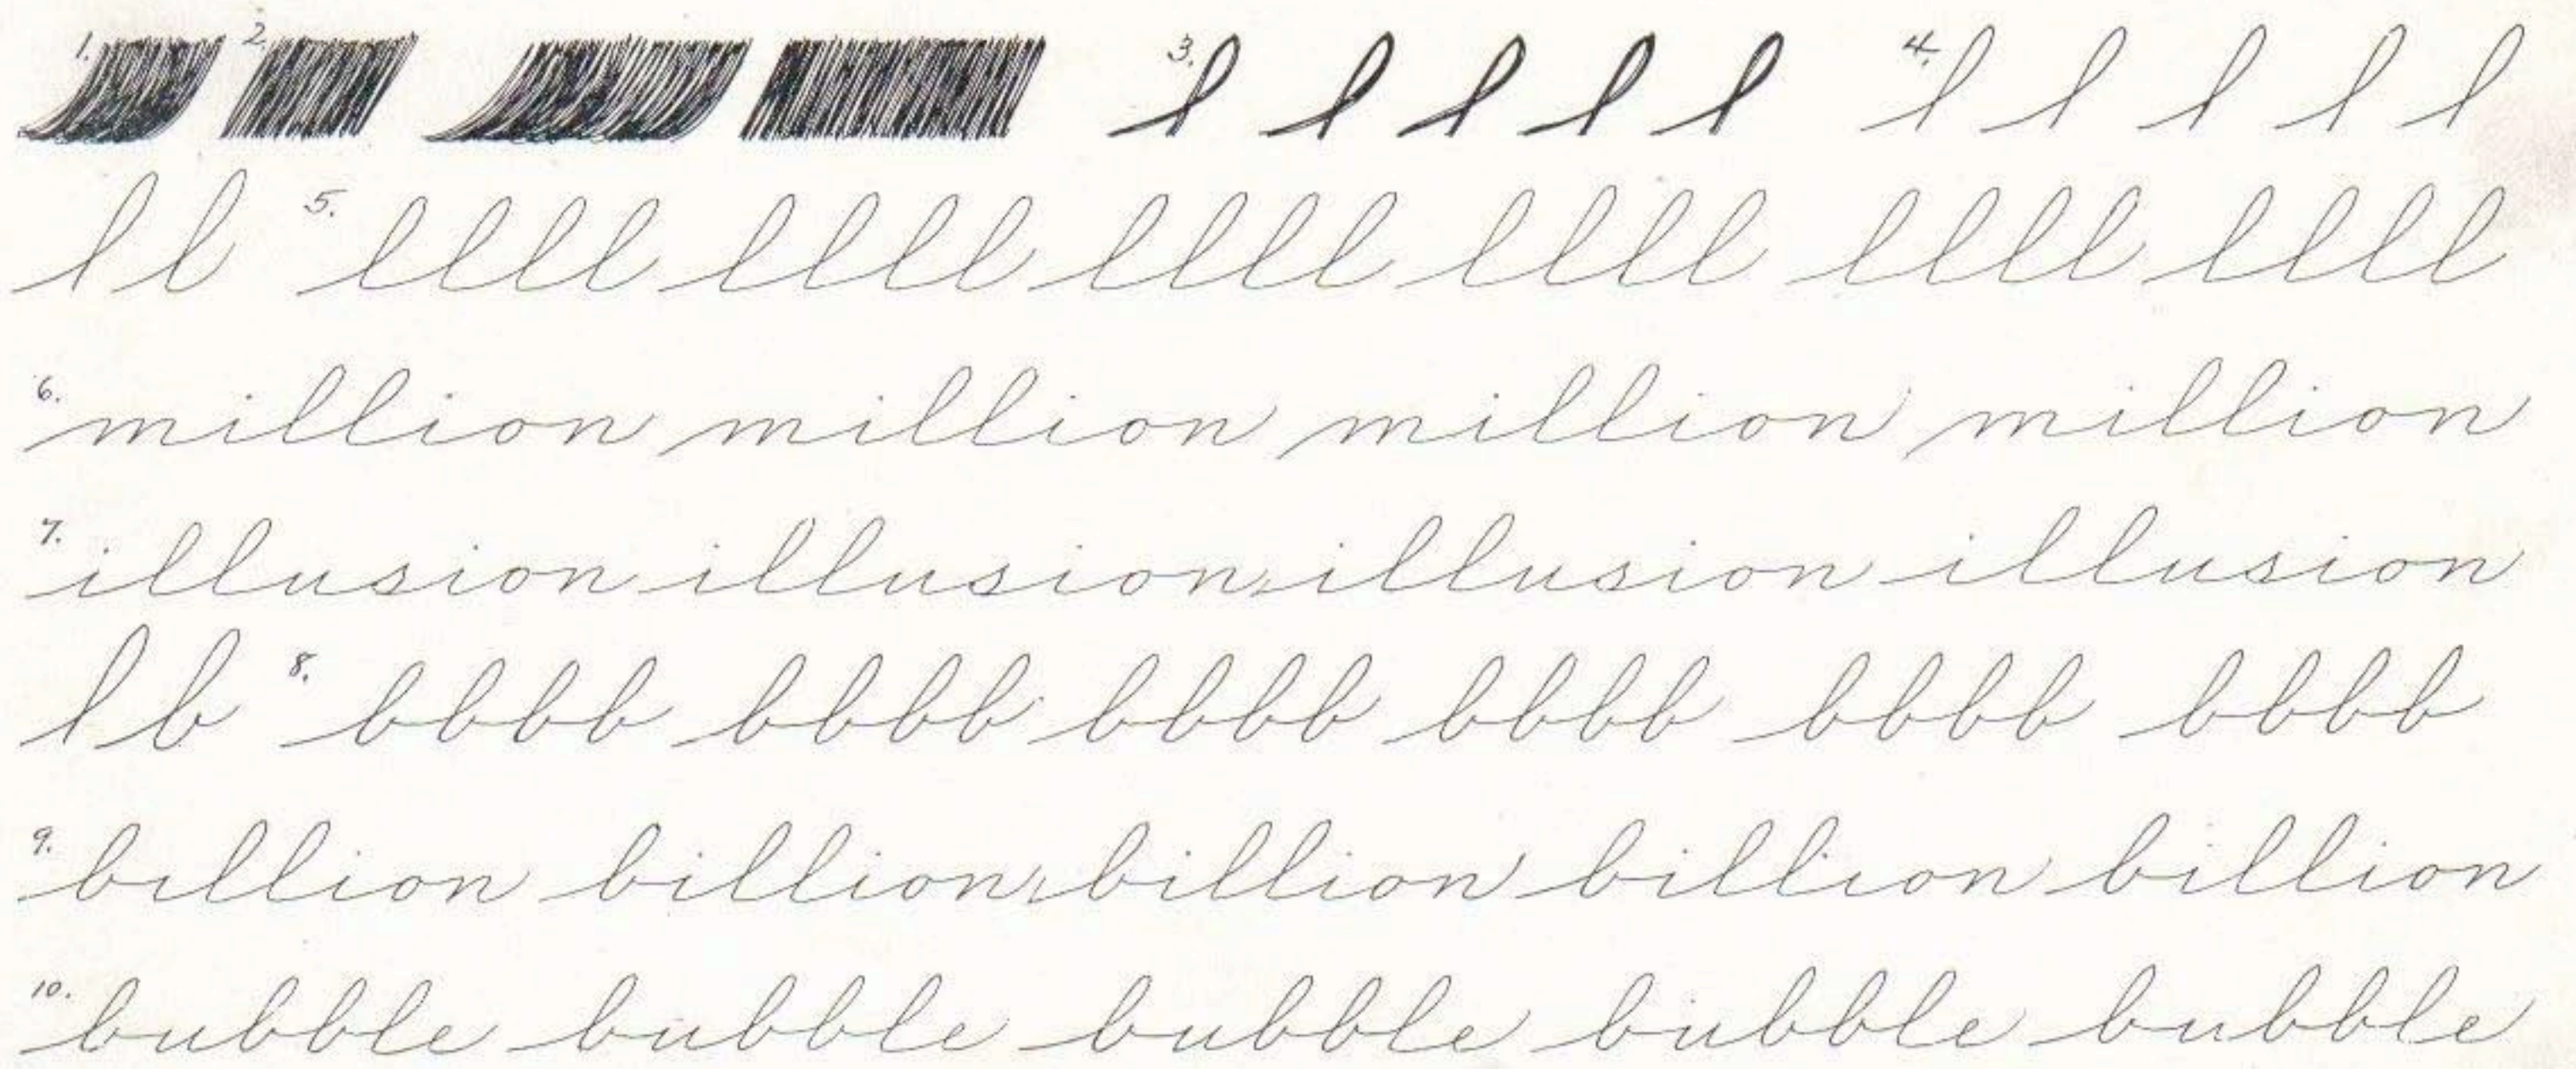 1. 2. 3. l l l l l 4. l l l l l
l l 5. llll llll llll llll llll llll
6. million million million million
7. illusion illusion illusion illusion
l b 8. bbbb bbbb bbbb bbbb bbbb bbbb
9. billion billion billion billion billion
10. bubble bubble bubble bubble bubble